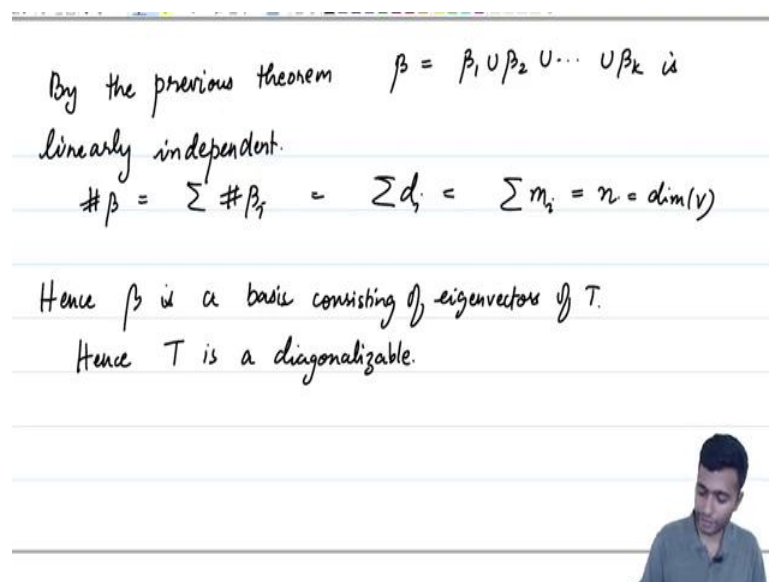 By the previous theorem β = β₁ ∪ β₂ ∪ ... ∪ βₖ is
linearly independent.
#β = Σ #βᵢ = Σ dᵢ = Σ mᵢ = n = dim(V)
Hence β is a basis consisting of eigenvectors of T.
Hence T is a diagonalizable.